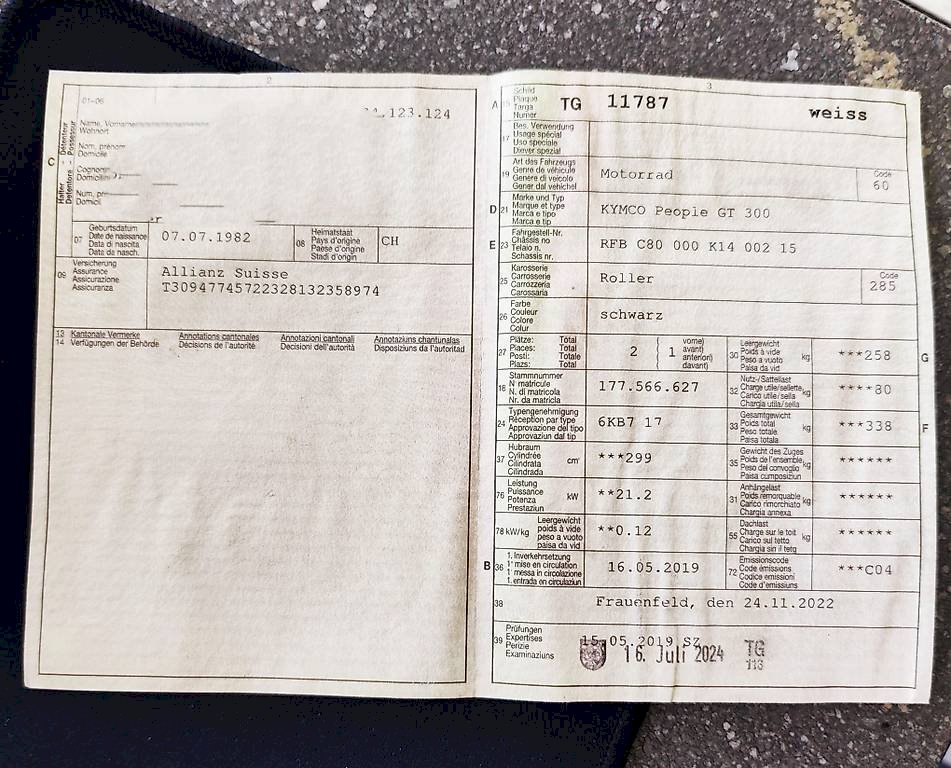 2
01-06
123.124
C
Halter
Détenteur
Detentore
Possessur
Name, Vorname
Wohnort
Nom, prénom
Domicile
Cognom
Domicilio
Num, pr
Domicil
07
Geburtsdatum
Date de naissance
Data di nascita
Data da nasch.
07.07.1982
08
Heimatstaat
Pays d'origine
Paese d'origine
Stadi d'origin
CH
09
Versicherung
Assurance
Assicurazione
Assicuranza
Allianz Suisse
T30947745722328132358974
13 Kantonale Vermerke Annotations cantonales Annotazioni cantonali Annotaziuns chantunalas
14 Verfügungen der Behörde Décisions de l'autorité Decisioni dell'autorità Disposiziuns da l'autoritad
3
A 15
Schild
Plaque
Targa
Numer
TG 11787 weiss
17
Bes. Verwendung
Usage spécial
Uso speciale
Diever spezial
19
Art des Fahrzeugs
Genre de véhicule
Genere di veicolo
Gener dal vehichel
Motorrad
Code
60
D 21
Marke und Typ
Marque et type
Marca e tipo
Marca e tip
KYMCO People GT 300
E 23
Fahrgestell-Nr.
Châssis no
Telaio n.
Schassis nr.
RFB C80 000 K14 002 15
25
Karosserie
Carrosserie
Carrozzeria
Carossaria
Roller
Code
285
26
Farbe
Couleur
Colore
Colur
schwarz
27
Plätze: Total
Places: Total
Posti: Totale
Plazs: Total
2
1
vorne)
avant)
anteriori)
davant)
30
Leergewicht
Poids à vide
Peso a vuoto
Paisa da vid
kg
***258
G
18
Stammnummer
N° matricule
N. di matricola
Nr. da matricla
177.566.627
32
Nutz-/Sattellast
Charge utile/sellette
Carico utile/sella
Chargia utila/sella
kg
****80
24
Typengenehmigung
Réception par type
Approvazione del tipo
Approvaziun dal tip
6KB7 17
33
Gesamtgewicht
Poids total
Peso totale
Paisa totala
kg
***338
F
37
Hubraum
Cylindrée
Cilindrata
Cilindrada
cm³
***299
35
Gewicht des Zuges
Poids de l'ensemble
Peso del convoglio
Paisa cumposiziun
kg
******
76
Leistung
Puissance
Potenza
Prestaziun
kW
**21.2
31
Anhängelast
Poids remorquable
Carico rimorchiato
Chargia annexa
kg
******
78 kW/kg
Leergewicht
poids à vide
peso a vuoto
paisa da vid
**0.12
55
Dachlast
Charge sur le toit
Carico sul tetto
Chargia sin il tetg
kg
******
B 36
1. Inverkehrsetzung
1re mise en circulation
1a messa in circolazione
1. entrada en circulaziun
16.05.2019
72
Emissionscode
Code émissions
Codice emissioni
Code d'emissiuns
***C04
38
Frauenfeld, den 24.11.2022
39
Prüfungen
Expertises
Perizie
Examinaziuns
15.05.2019 SZ
16. Juli 2024 TG
113